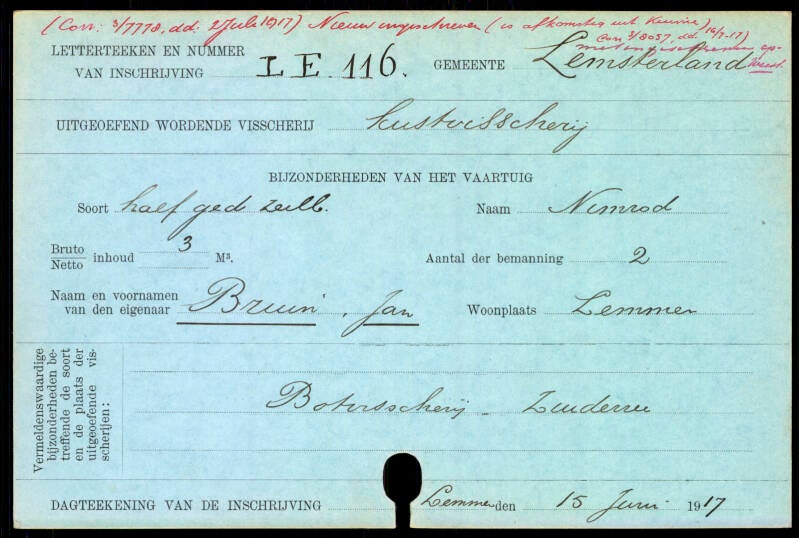 (Corr: 3/7778, dd: 2 Juli 1917) Nieuw ingeschreven (is afkomstig uit Kuinre)
Corr 3/8057, dd. 16/7-17)
LETTERTEEKEN EN NUMMER
VAN INSCHRIJVING LE 116. GEMEENTE Lemsterland
UITGEOEFEND WORDENDE VISSCHERIJ kustvisscherij
BIJZONDERHEDEN VAN HET VAARTUIG
Soort half ged zeilb. Naam Nimrod
Bruto
Netto inhoud 3 M³. Aantal der bemanning 2
Naam en voornamen
van den eigenaar Bruin, Jan Woonplaats Lemmer
Vermeldenswaardige
bijzonderheden be-
treffende de soort
en de plaats der
uitgeoefende vis-
scherijen:
Botvisscherij - Zuiderzee
DAGTEEKENING VAN DE INSCHRIJVING Lemmer den 15 Juni 1917